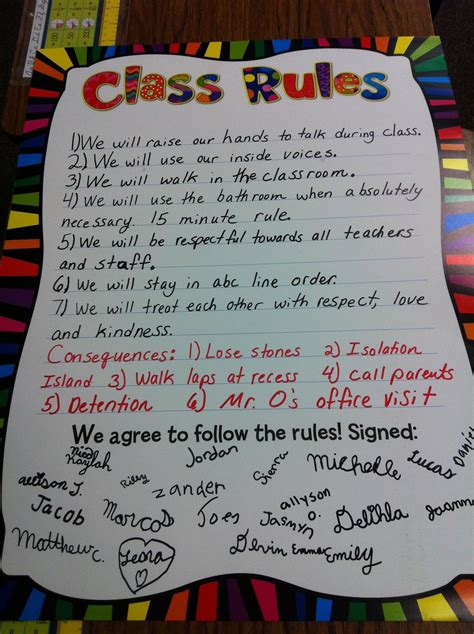 Class Rules
1) We will raise our hands to talk during class.
2) We will use our inside voices.
3) We will walk in the classroom.
4) We will use the bathroom when absolutely
necessary. 15 minute rule.
5) We will be respectful towards all teachers
and staff.
6) We will stay in abc line order.
7) We will treat each other with respect, love
and kindness.
Consequences: 1) Lose stones 2) Isolation
Island 3) Walk laps at recess 4) call parents
5) Detention 6) Mr. O's office visit
We agree to follow the rules! Signed:
Nicol Kaylah Jordan Sienna Michelle Lucas Daniel
allison J. Riley zander allyson O.
Jacob Marcos Joes Jasmyn Delihla
Matthew C. Leona Devin Emma Emily